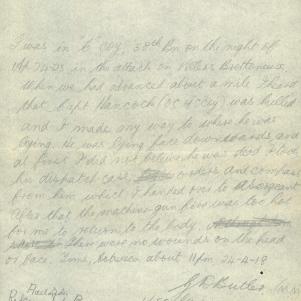 I was in "C" Coy, 38th Bn on the night of
24-25 in the attack on Villers Bretteneux,
When we had advanced about a mile I heard
that Capt Hancock (OC H Coy) was killed
and I made my way to where he was
lying. He was lying face downwards and
at first I did not believe he was dead I took
his dispatch case, orders and compass
from him which I handed over to a Sergeant
After that the machine-gun fire was too hot
for me to return to the body,
There were no wounds on the head
or face. Time, between about 11 pm. 24-4-18
Butler